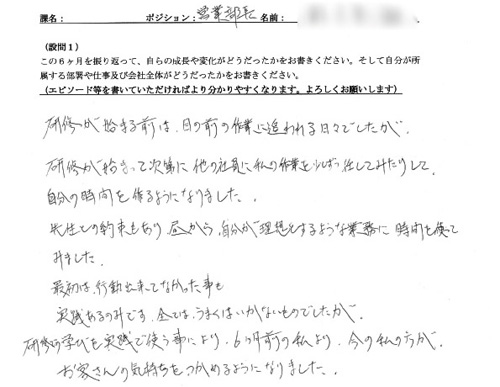 課名： ポジション：営業部長 名前：
（設問１）
この６ヶ月を振り返って、自らの成長や変化がどうだったかをお書きください。そして自分が所
属する部署や仕事及び会社全体がどうだったかをお書きください。
（エピソード等を書いていただければより分かりやすくなります。よろしくお願いします）
研修が始まる前は、目の前の作業に追われる日々でしたが、
研修が始まって次第に他の社員に私の作業を少しずつ任してみたりして、
自分の時間を作るようになりました。
先生との約束もあり昼から自分が理想とするような業務に時間を使って
みました。
最初は、行動出来てなかった事も
実践あるのみです。全ては、うまくはいかないものでしたが、
研修の学びを実践で使う事により、６ヶ月前の私より、今の私の方が、
お客さんの気持ちをつかめるようになりました。